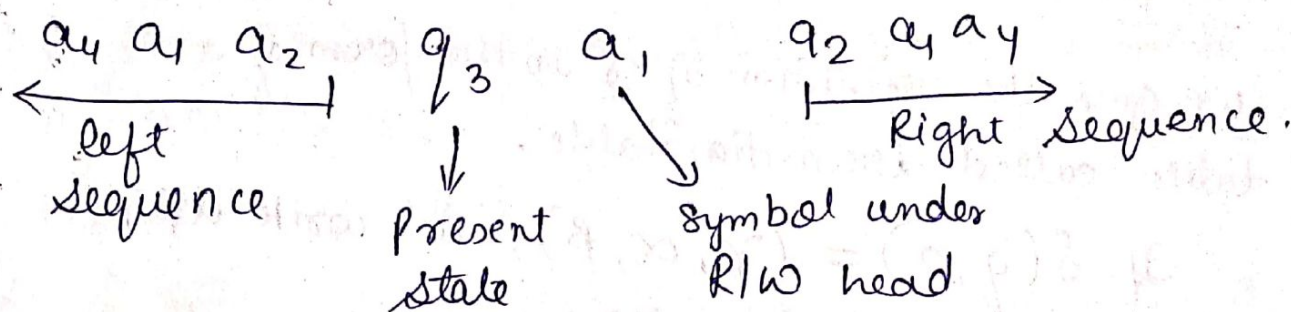 a₄ a₁ a₂ q₃ a₁ a₂ a₁ a₄
left sequence
Present state
Symbol under R/W head
Right sequence.